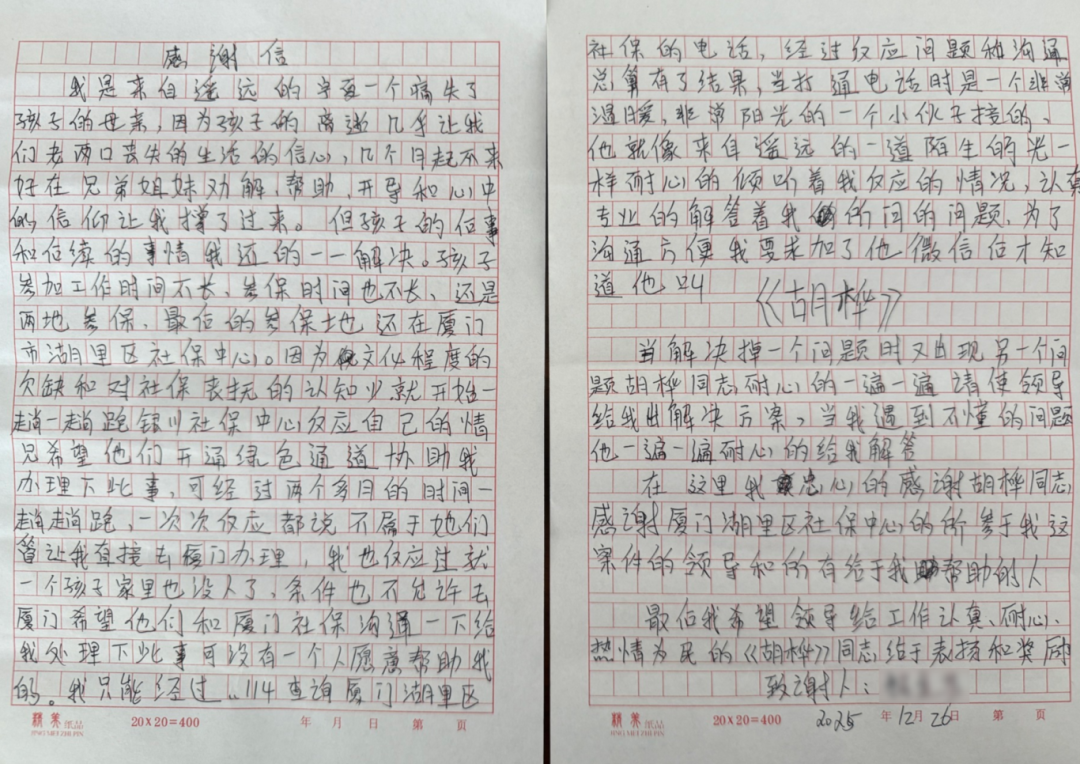 感谢信
我是来自遥远的宁夏一个痛失了
孩子的母亲，因为孩子的离逝几乎让我
们老两口丢失的生活的信心，几个月起不来
好在兄弟姐妹劝解、帮助、开导和心中
的信仰让我撑了过来。但孩子的后事
和后续的事情我还的一一解决。孩子
参加工作时间不长、参保时间也不长、还是
两地参保、最后的参保地还在厦门
市湖里区社保中心。因为文化程度的
欠缺和对社保表抚的认知少就开始一
趟一趟跑银川社保中心反应自己的情
况希望他们开通绿色通道协助我
办理下此事，可经过两个多月的时间一
趟趟跑，一次次反应都说不属于她们
管让我直接去厦门办理，我也反应过就
一个孩子家里也没人了、条件也不允许去
厦门希望他们和厦门社保沟通一下给
我处理下此事可没有一个人愿意帮助我
的。我只能经过..114查询厦门湖里区
精美纸品
JING MEI ZHI PIN
20×20=400
年 月 日 第 页
社保的电话，经过反应问题和沟通
总算有了结果，当打通电话时是一个非常
温暖，非常阳光的一个小伙子接的、
他就像来自遥远的一道陌生的光一
样耐心的倾听着我反应的情况，认真
专业的解答着我所问的问题，为了
沟通方便我要求加了他微信后才知
道他叫《胡桦》
当解决掉一个问题时又出现另一个问
题胡桦同志耐心的一遍一遍请使领导
给我出解决方案，当我遇到不懂的问题
他一遍一遍耐心的给我解答
在这里我忠心的感谢胡桦同志
感谢厦门湖里区社保中心的所参于我这
案件的领导和所有给于我帮助的人
最后我希望领导给工作认真、耐心、
热情为民的《胡桦》同志给于表扬和奖励
致谢人：
精美纸品
JING MEI ZHI PIN
20×20=400
2025年12月26日 第 页